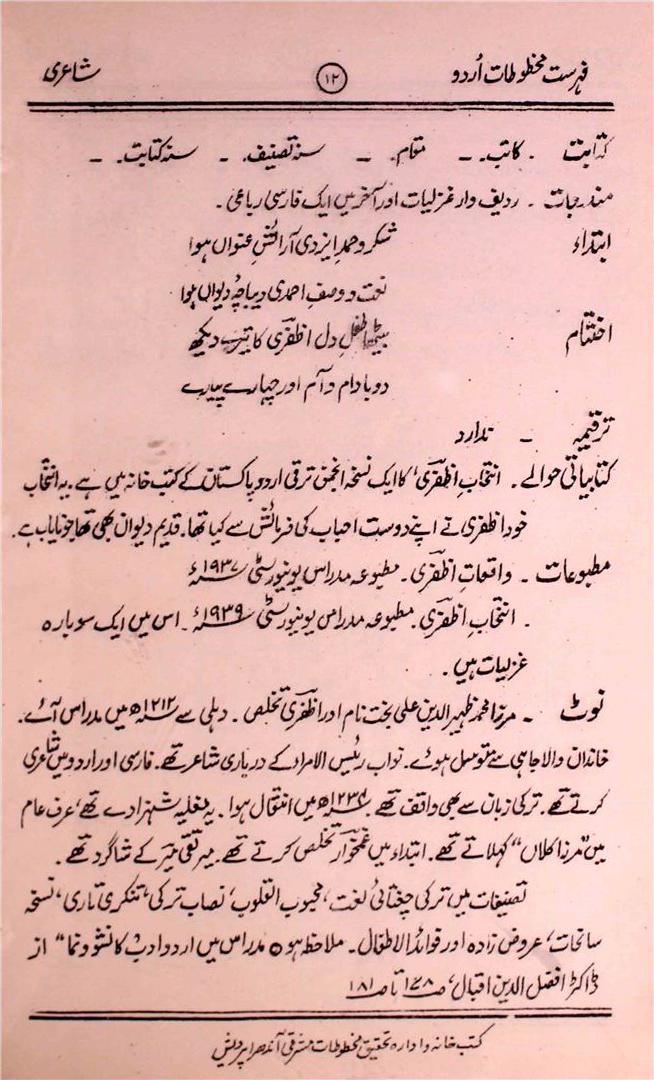 فہرست مخطوطات اُردو ۱۲ شاعری
کتابت - کاتب - - مقام - - سنہ تصنیف - - سنہ کتابت - -
مندرجات - ردیف وار غزلیات اور آخر میں ایک فارسی رباعی -
ابتداء شکر و حمدِ ایزدی آرائشِ عنواں ہوا
نعت و وصفِ احمدی دیباچہ دیواں ہوا
اختتام بیٹھا طفلِ دل اظفری کا تیرے دیکھ
دو بادام و آم اور چہارے پیارے
ترقیمہ - ندارد
کتابیاتی حوالے - انتخابِ اظفری، کا ایک نسخہ انجمن ترقی اردو پاکستان کے کتب خانہ میں ہے - یہ انتخاب
خود اظفری نے اپنے دوست احباب کی فرمائش سے کیا تھا - قدیم دیوان بھی تھا جو نایاب ہے -
مطبوعات - واقعاتِ اظفری - مطبوعہ مدراس یونیورسٹی ۱۹۳۷ء
- انتخابِ اظفری - مطبوعہ مدراس یونیورسٹی ۱۹۳۹ء - اس میں ایک سو بارہ
غزلیات ہیں -
نوٹ - مرزا محمد ظہیر الدین علی بخت نام اور اظفری تخلص - دہلی سے ۱۲۱۲ھ میں مدراس آئے -
خاندان والا جاہی سے متوسل ہوئے - نواب رئیس الامراء کے درباری شاعر تھے - فارسی اور اردو میں شاعری
کرتے تھے - ترکی زبان سے بھی واقف تھے - ۱۲۳۴ھ میں انتقال ہوا - یہ مغلیہ شہزادے تھے، عرف عام
میں "مرزا کلاں" کہلاتے تھے - ابتداء میں غمخوار تخلص کرتے تھے - میر تقی میر کے شاگرد تھے -
تصنیفات میں ترکی چغتائی لغت، محبوب القلوب، نصاب ترکی، تنکری تاری، نسخہ
سانحات، عروض زادہ اور فوائد الاطفال - ملاحظہ ہو مدراس میں اردو ادب کا نشو و نما" از
ڈاکٹر افضل الدین اقبال، ص ۱۷۸ تا ص ۱۸۱
کتب خانہ و ادارہ تحقیق مخطوطات مشرقی آندھرا پردیش